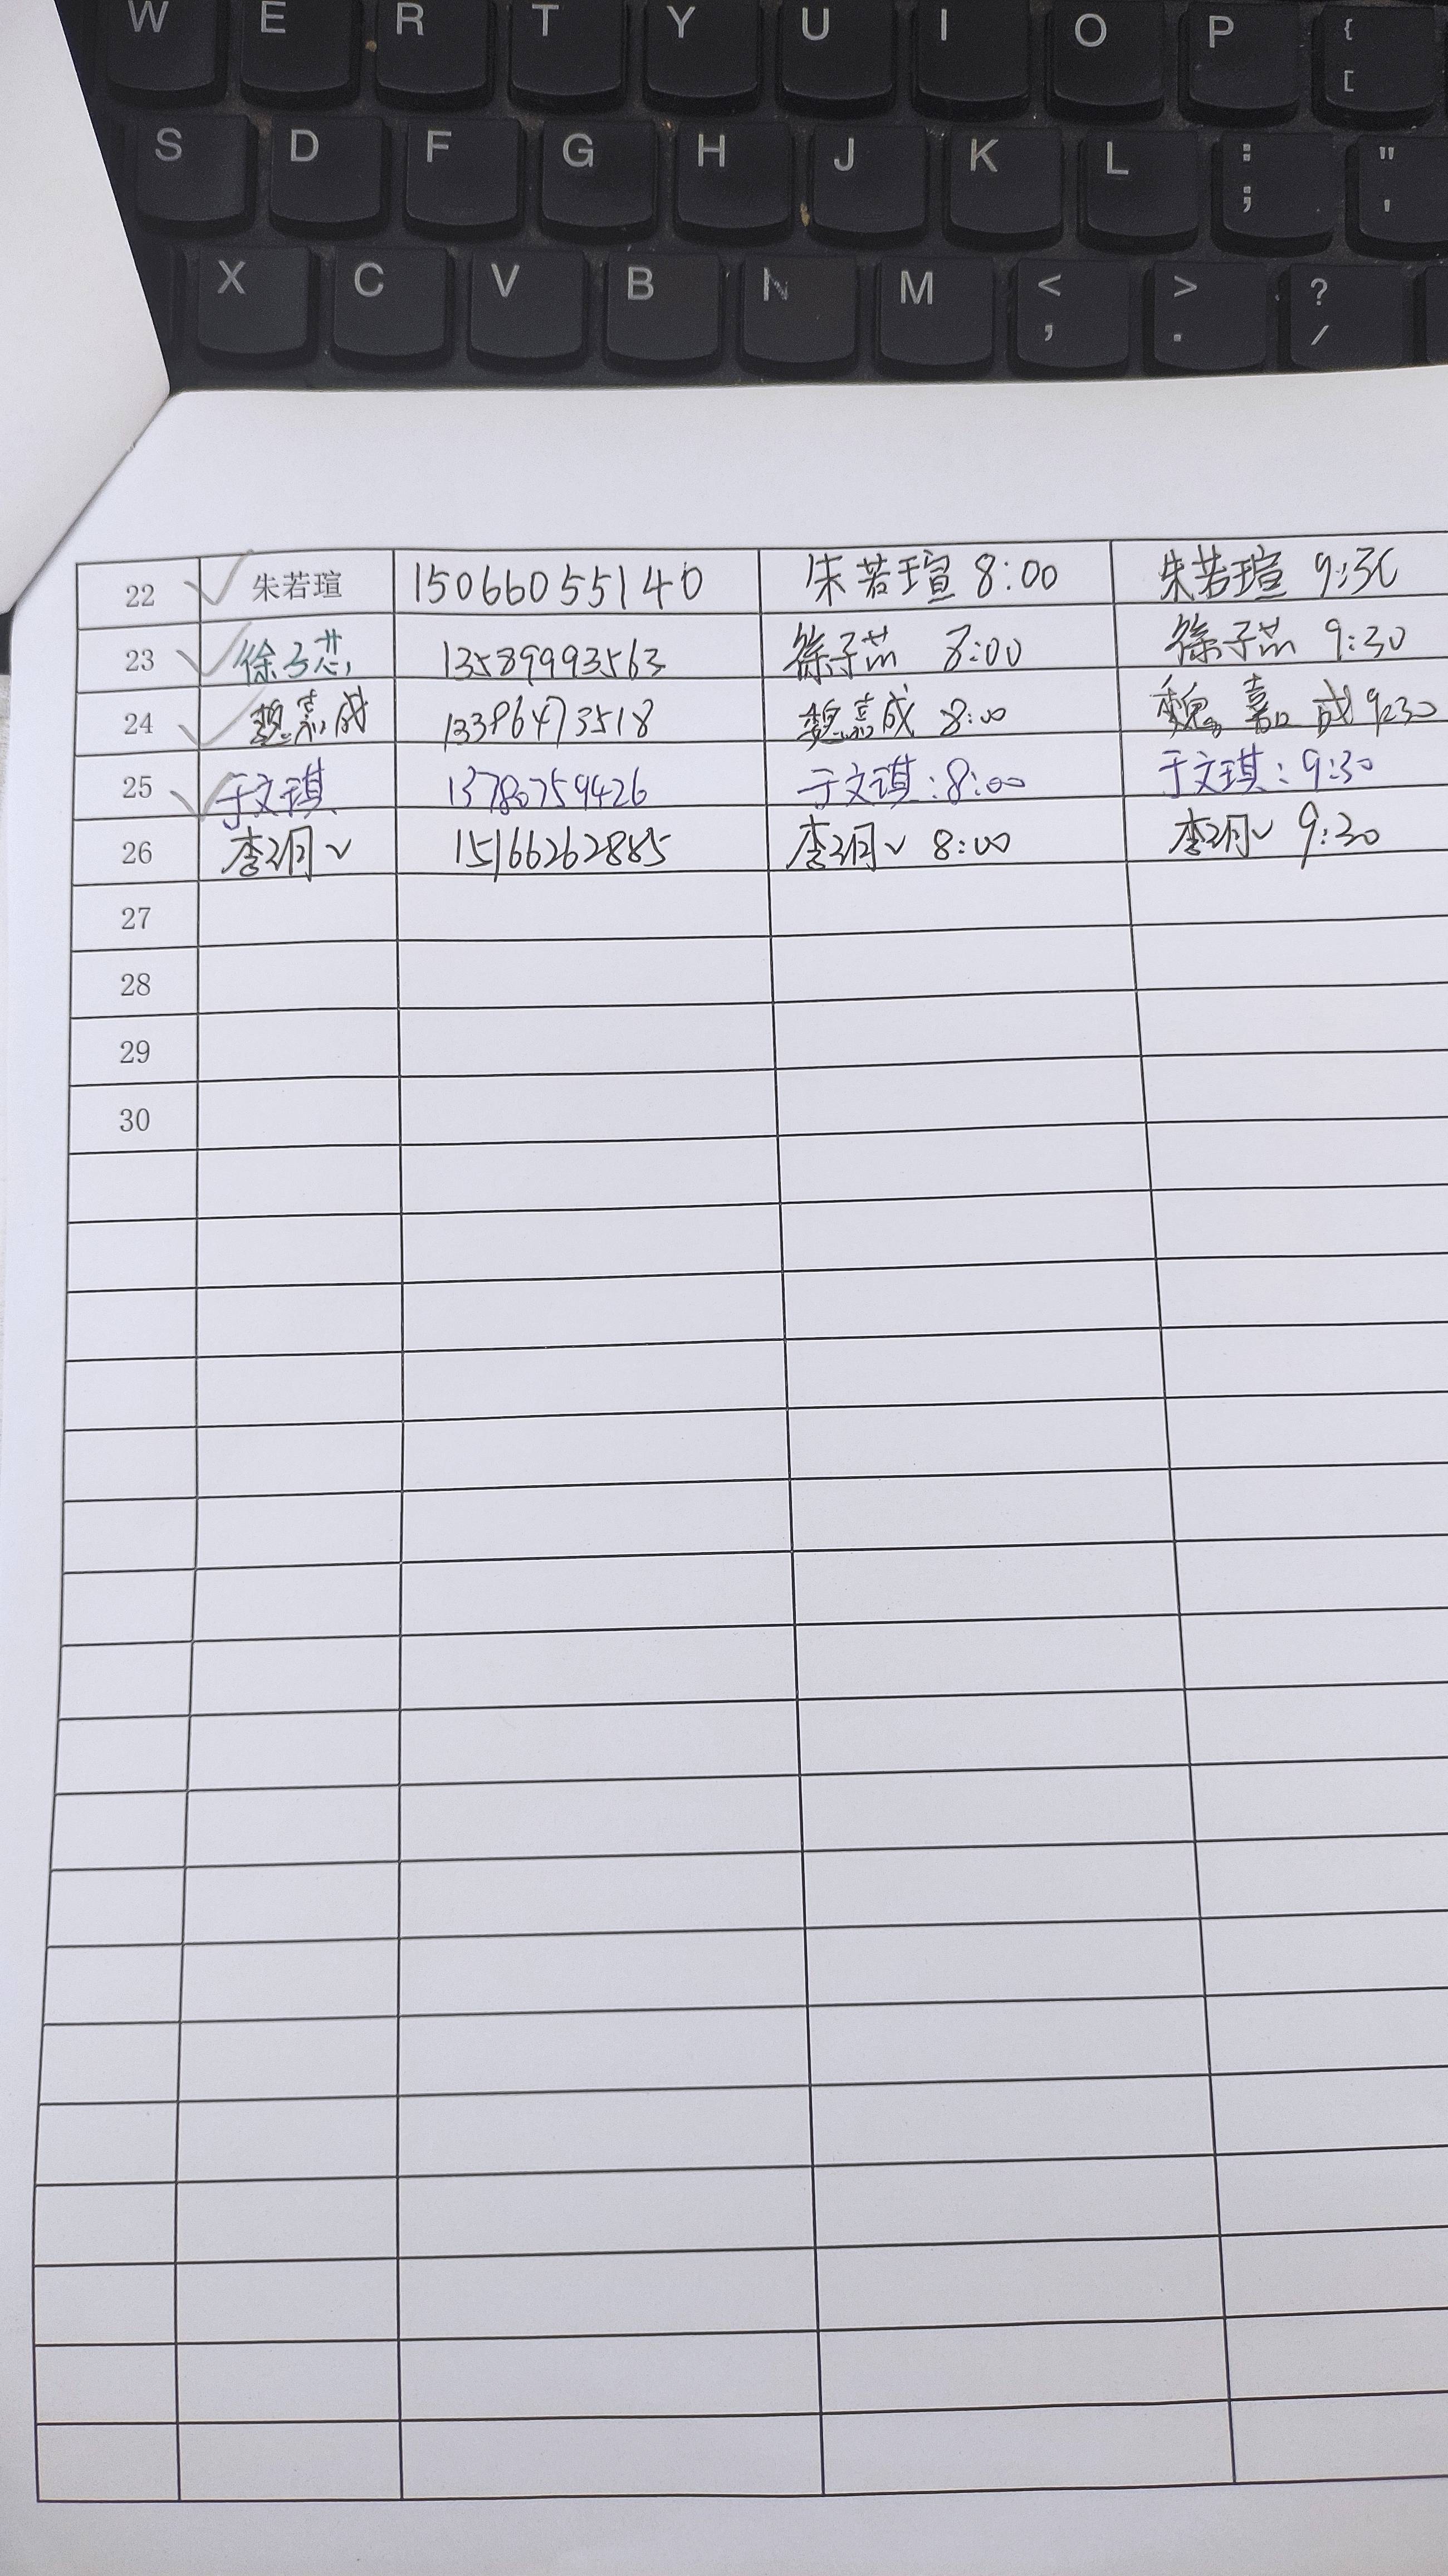 W E R T Y U I O P { [
S D F G H J K L : ; " '
X C V B N M < , > . ? /
22 朱若瑄 15066055140 朱若瑄 8:00 朱若瑄 9:30
23 徐子芯 13589993563 徐子芯 8:00 徐子芯 9:30
24 魏嘉成 13396473518 魏嘉成 8:00 魏嘉成 9:30
25 于文琪 13780759426 于文琪:8:00 于文琪:9:30
26 李 15166262885 李 8:00 李 9:30
27
28
29
30